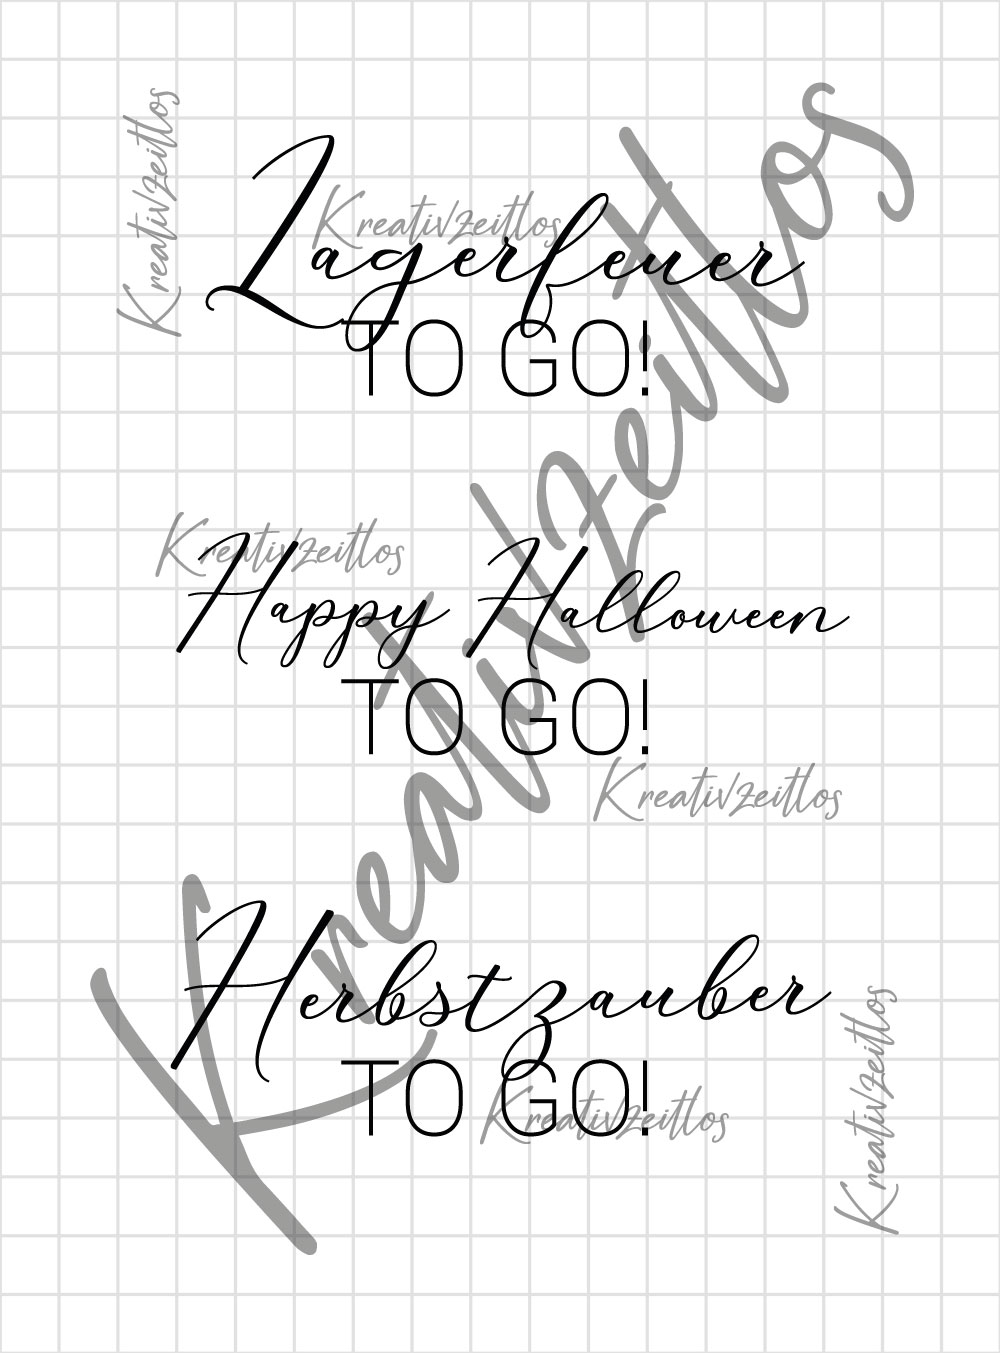 Kreativzeitlos
Kreativzeitlos
Lagerfeuer
TO GO!
Kreativzeitlos
Kreativzeitlos
Happy Halloween
TO GO!
Kreativzeitlos
Herbstzauber
TO GO!
Kreativzeitlos
Kreativzeitlos